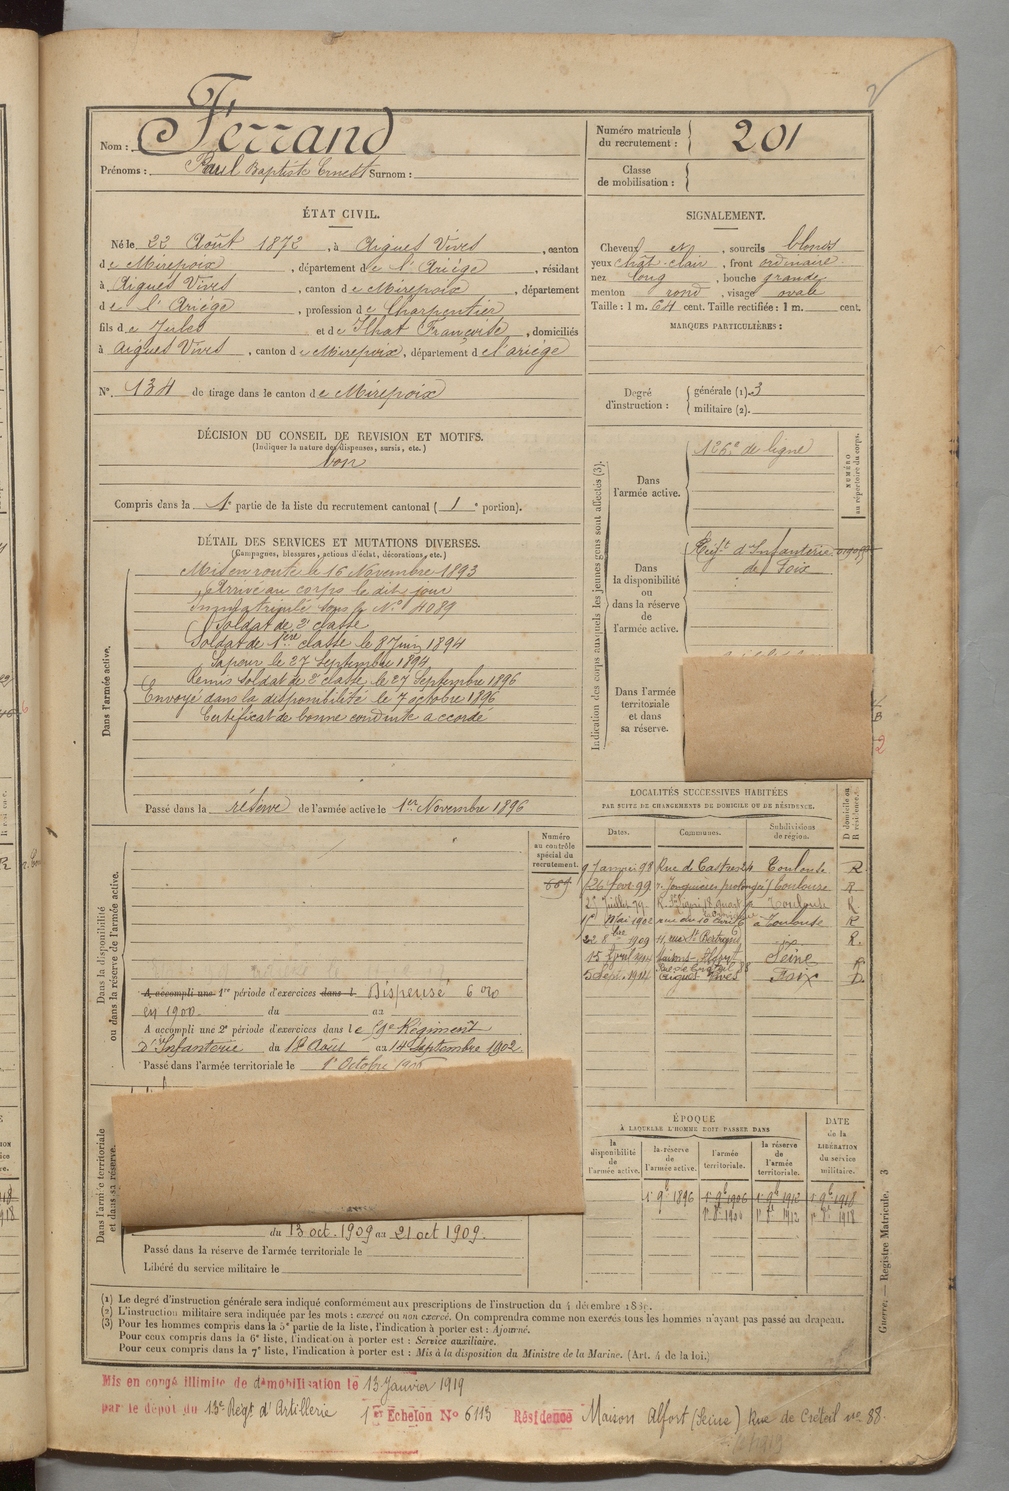 Nom : Ferrand
Prénoms : Paul Baptiste Ernest Surnom :
Numéro matricule du recrutement : 201
Classe de mobilisation :
ÉTAT CIVIL.
Né le 22 Août 1872, à Aigues Vives, canton
de Mirepoix, département de l'Ariége, résidant
à Aigues Vives, canton de Mirepoix, département
de l'Ariége, profession de Charpentier
fils de Jules et de Ilhat Françoise, domiciliés
à Aigues Vives, canton de Mirepoix, département de l'ariège
N° 134 de tirage dans le canton de Mirepoix
SIGNALEMENT.
Cheveux et, sourcils blonds
yeux chât-clair, front ordinaire
nez long, bouche grande
menton rond, visage ovale
Taille : 1 m. 64 cent. Taille rectifiée : 1 m. cent.
MARQUES PARTICULIÈRES :
Degré d'instruction : générale (1). 3
militaire (2).
DÉCISION DU CONSEIL DE REVISION ET MOTIFS.
(Indiquer la nature des dispenses, sursis, etc.)
bon
Compris dans la 1e partie de la liste du recrutement cantonal (1e portion).
DÉTAIL DES SERVICES ET MUTATIONS DIVERSES.
(Campagnes, blessures, actions d'éclat, décorations, etc.)
Dans l'armée active.
Mis en route le 16 Novembre 1893
Arrivé au corps le dit jour
Immatriculé sous le N° 4089
Soldat de 2e classe
Soldat de 1ère classe le 8 Juin 1894
Sapeur le 27 Septembre 1894
Remis soldat de 2e classe le 27 Septembre 1896
Envoyé dans la disponibilité le 7 octobre 1896
Certificat de bonne conduite accordé
Passé dans la réserve de l'armée active le 1er Novembre 1896
Indication des corps auxquels les jeunes gens sont affectés (3).
NUMÉRO au répertoire du corps.
Dans l'armée active.
126e de ligne
Dans la disponibilité ou dans la réserve de l'armée active.
Régt d'Infanterie
de Foix
Dans l'armée territoriale et dans sa réserve.
LOCALITÉS SUCCESSIVES HABITÉES
PAR SUITE DE CHANGEMENTS DE DOMICILE OU DE RÉSIDENCE.
Dates. Communes. Subdivisions de région. D domicile ou R résidence.
9 Janvier 98 Rue de Castres 24 Toulouse R
26 Févr 99 Toulouse R
Toulouse R
1er Mai 1902 à Toulouse R
22 8bre 1909 11, rue St Bertrand R.
15 Avril 1914 Maisons-Alfort Seine
Rue de Créteil 88
5 Sept. 1914 Aigues Vives Foix D.
Numéro au contrôle spécial du recrutement.
Dans la disponibilité ou dans la réserve de l'armée active.
A accompli une 1re période d'exercices dans l Dispensé 6%
en 1900. du au
A accompli une 2e période d'exercices dans le Régiment
D'Infanterie du 18 Août au 14 Septembre 1902.
Passé dans l'armée territoriale le 1er Octobre
Dans l'armée territoriale et dans sa réserve.
du 13 oct. 1909 au 21 oct 1909.
Passé dans la réserve de l'armée territoriale le
Libéré du service militaire le
ÉPOQUE
À LAQUELLE L'HOMME DOIT PASSER DANS
la disponibilité de l'armée active. la réserve de l'armée active. l'armée territoriale. la réserve de l'armée territoriale.
DATE de la LIBÉRATION du service militaire.
1er 9bre 1896 1er 9bre 1906 1er 9bre 1912 1er 9bre 1918
1912 1918
(1) Le degré d'instruction générale sera indiqué conformément aux prescriptions de l'instruction du 4 décembre
(2) L'instruction militaire sera indiquée par les mots : exercé ou non exercé. On comprendra comme non exercés tous les hommes n'ayant pas passé au drapeau.
(3) Pour les hommes compris dans la 5e partie de la liste, l'indication à porter est : Ajourné.
Pour ceux compris dans la 6e liste, l'indication à porter est : Service auxiliaire.
Pour ceux compris dans la 7e liste, l'indication à porter est : Mis à la disposition du Ministre de la Marine. (Art. 4 de la loi.)
Guerre. — Registre Matricule. 3
Mis en congé illimité de démobilisation le 13 Janvier 1919
par le dépot du 13e Régt d'Artillerie 1er Echelon N° 6113 Résidence Maison Alfort (Seine) Rue de Créteil no 88.